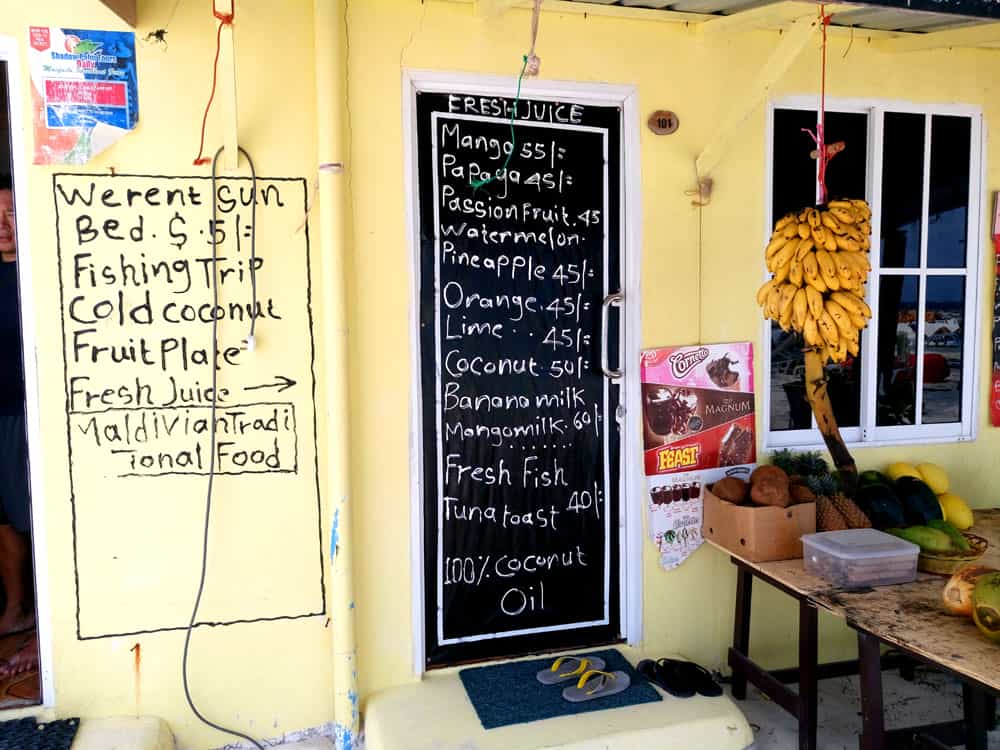 Shadow Palm Tours
Daily
Werent Sun
Bed. $.5/=
Fishing Trip
Cold coconut
Fruit Plate
Fresh Juice →
Maldivian Tradi
Tional Food
FRESH JUICE
Mango 55/=
Papaya 45/=
Passion Fruit. 45
watermelon.
Pineapple 45/=
Orange. 45/=
Lime . . 45/=
Coconut. 50/=
Banana milk
Mango milk. 60/=
Fresh Fish
Tuna toast 40/=
100% Coconut
Oil
101
Cornetto
MAGNUM
FEAST
MAGNUM